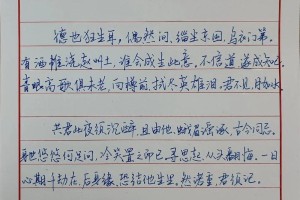 德也狂生耳，偶然间、缁尘京国，乌衣门第。
有酒惟浇赵州土，谁会成生此意。不信道、遂成知己。
青眼高歌俱未老，向樽前、拭尽英雄泪。君不见，月如水。
共君此夜须沉醉。且由他、蛾眉谣诼，古今同忌。
身世悠悠何足问，冷笑置之而已。寻思起、从头翻悔。一日
心期千劫在，后身缘、恐结他生里。然诺重，君须记。